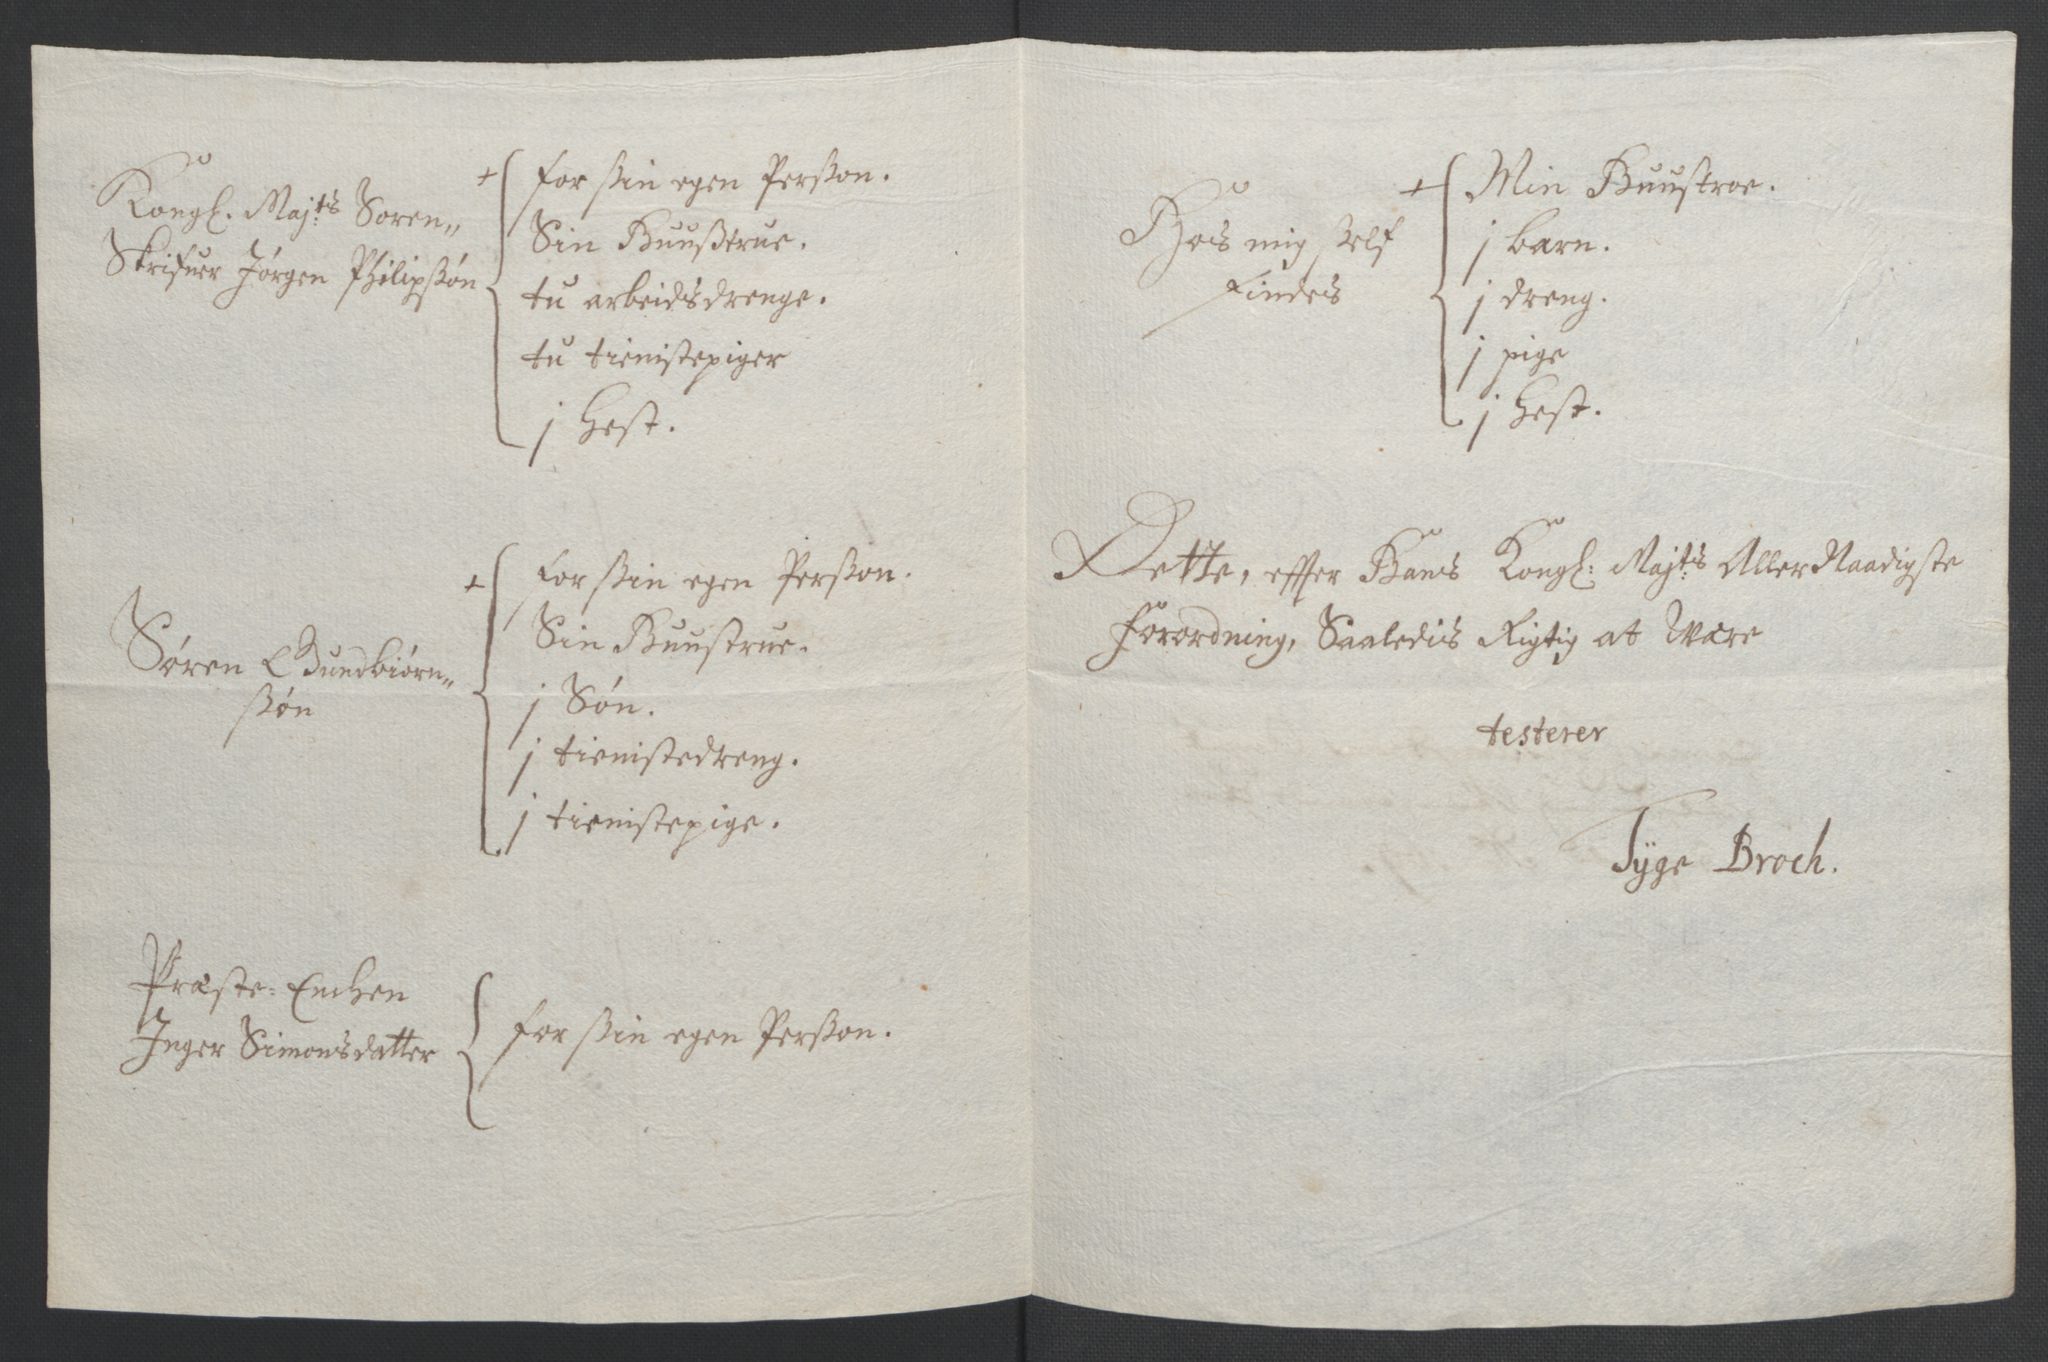 Kongl. Maj:ts Soren„
Skrifuer Jørgen Philipsøn
+ for ßin egen Perßon.
Sin Huußtrue.
tu arbeidsdrenge.
tu tienistepiger
j Hest.
Søren Gundbiørn„
ßøn
+ for ßin egen Perßon.
Sin Huustrue.
j Søn.
j tienistedreng.
j tienistepige.
Præste-Enchen
Inger Simonsdatter
for ßin egen Perßon.
Hois mig self
findes
+ Min Huustroe.
j barn.
j dreng.
j pige
j Hest.
Dette, effter Hans Kongl: Maj:ts Aller Naadigste
Forordning, Saaledis Rigtig at Være
testerer
Tÿge Broch.